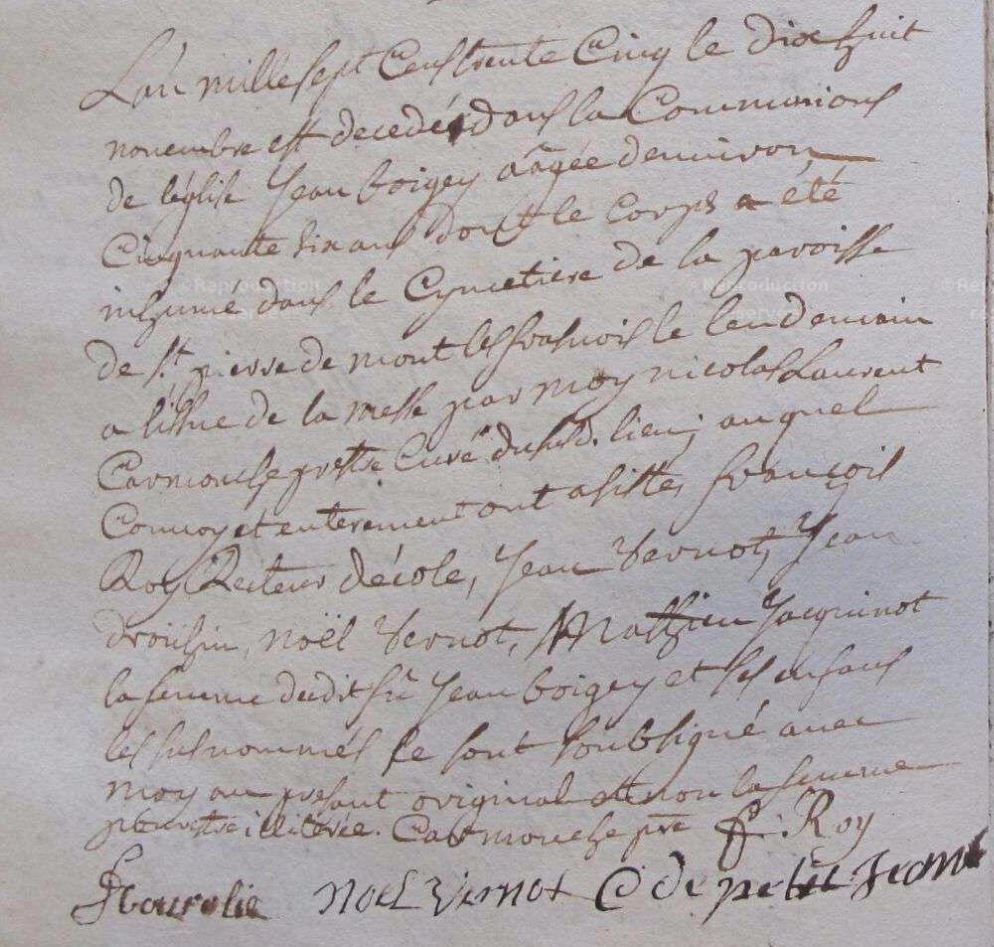 L'an mille sept Cens trente Cinq le dixhuit
novembre est decedé dans la Communions
de l'église Jean boigey aâgée denviron
Cinquante six ans dont le Corps a été
inhumé dans le Cymetiere de la paroisse
de st. pierre de mont les frasnois le lendemain
a lissue de la messe par moy nicolas Laurent
Carmouche prestre Curé dudsd. lieu, auquel
Convoy et enterement ont assistes françois
Roy Recteur décole, Jean Vernot, Jean
droühin, noël Vernot, Mathieu Jacquinot
la femme dudit fû Jean boigey et ses enfans
les susnommés se sont soubsigné avec
moy au present original et non la femme
pour estre illiterée. Carmouche pre F. Roy
noel vernot C de petit Jean
©Reproduction
©Reproduction